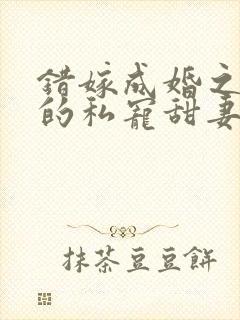 错嫁成婚之
的私宠甜妻
抹茶豆豆餅